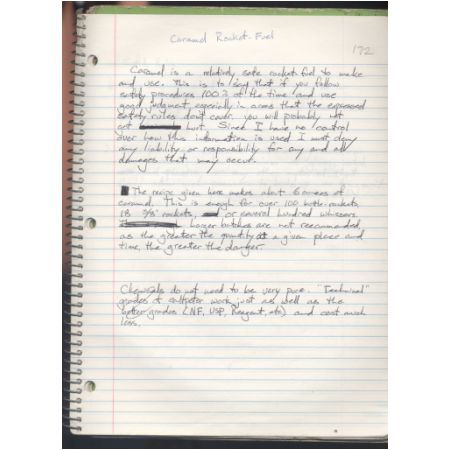 Caramel Rocket Fuel
172
Caramel is a relatively safe rocket fuel to make
and use. This is to say that if you follow
safety procedures 100% of the time and use
good judgment, especially in areas that the expressed
safety rules don't cover, you will probably not
get hurt. Since I have no control
over how this information is used I must deny
any liability or responsibility for any and all
damages that may occur.
The recipe given here makes about 6 ounces of
caramel. This is enough for over 100 bottle-rockets,
18 rockets, or several hundred whizzers.
Larger batches are not recommended,
as the greater the quantity at a given place and
time, the greater the danger.
Chemicals do not need to be very pure. "Technical"
grades of saltpeter work just as well as the
better grades (NF, USP, Reagent, etc) and cost much
less.